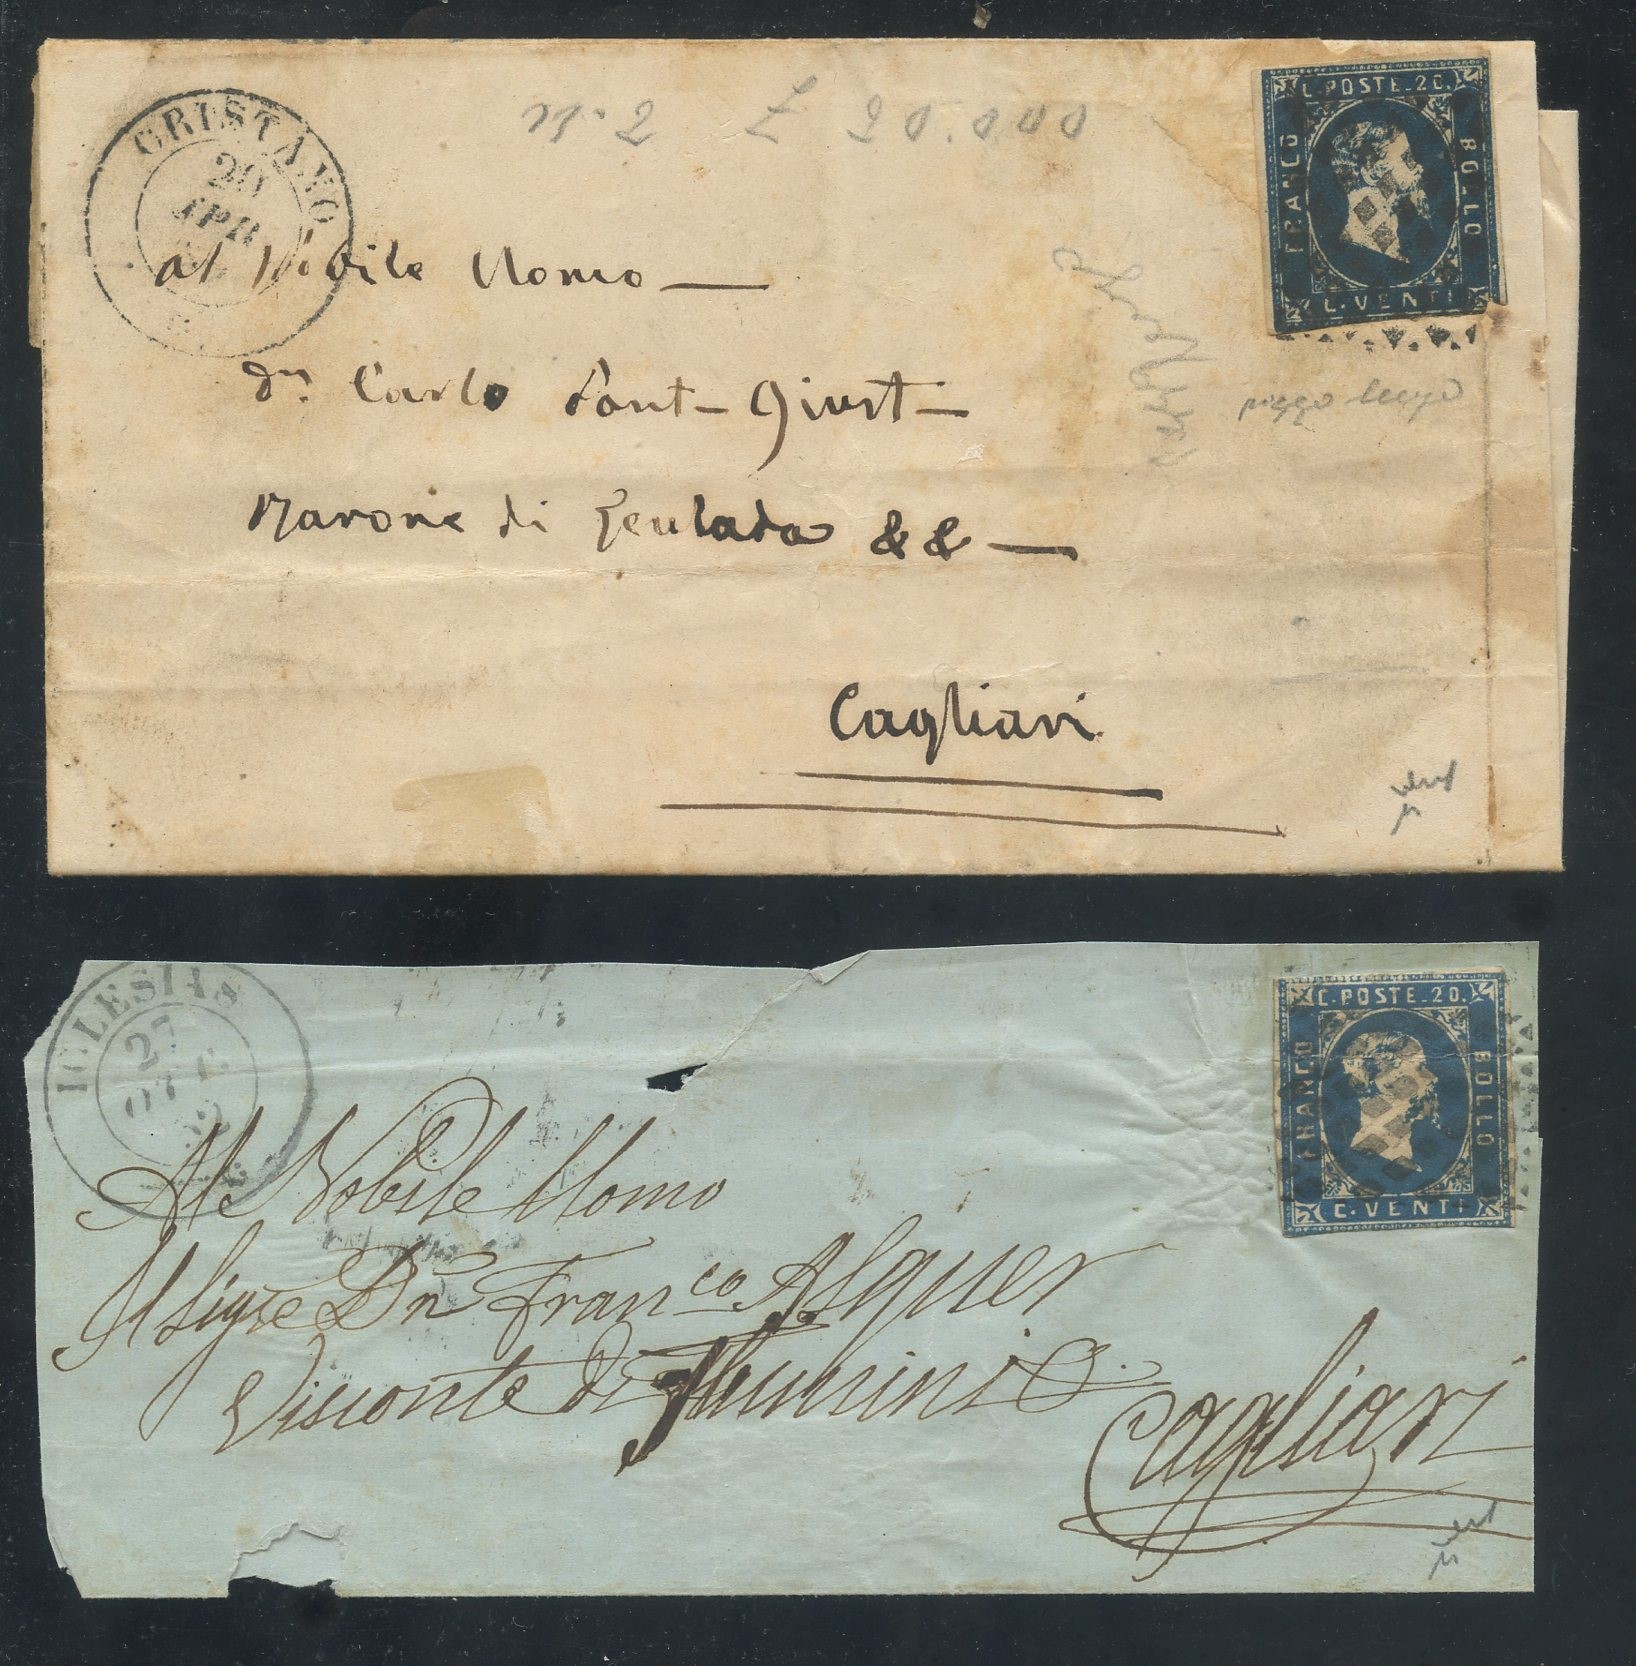 ORISTANO
20
APR
C. POSTE. 20.
FRANCO
BOLLO
C. VENTI
al Nobile Uomo
Dn. Carlo Sant-Giust
Barone di Teulada &&
Cagliari
IGLESIAS
27
C. POSTE. 20.
FRANCO
BOLLO
C. VENTI
Al Nobile Uomo
Il Sigre Dn Franco Alguer
Visconte di Flumini
Cagliari